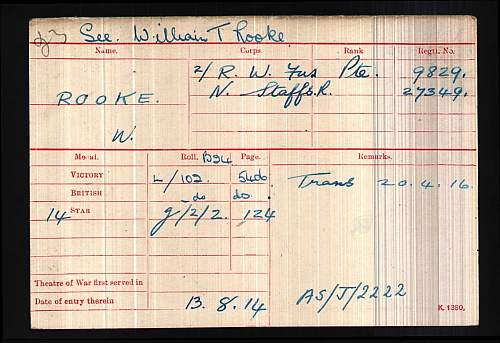 See. William T Rooke
Name. Corps. Rank Regtl. No.
2/ R. W. Fus Pte. 9829.
ROOKE. N. Staffs. R. 27349.
W.
Medal. Roll. B94 Page. Remarks.
VICTORY L/102. 540 Trans 20.4.16.
BRITISH do do.
14 STAR g/2/2. 124
Theatre of War first served in
Date of entry therein 13.8.14 AS/J/2222
K. 1380.